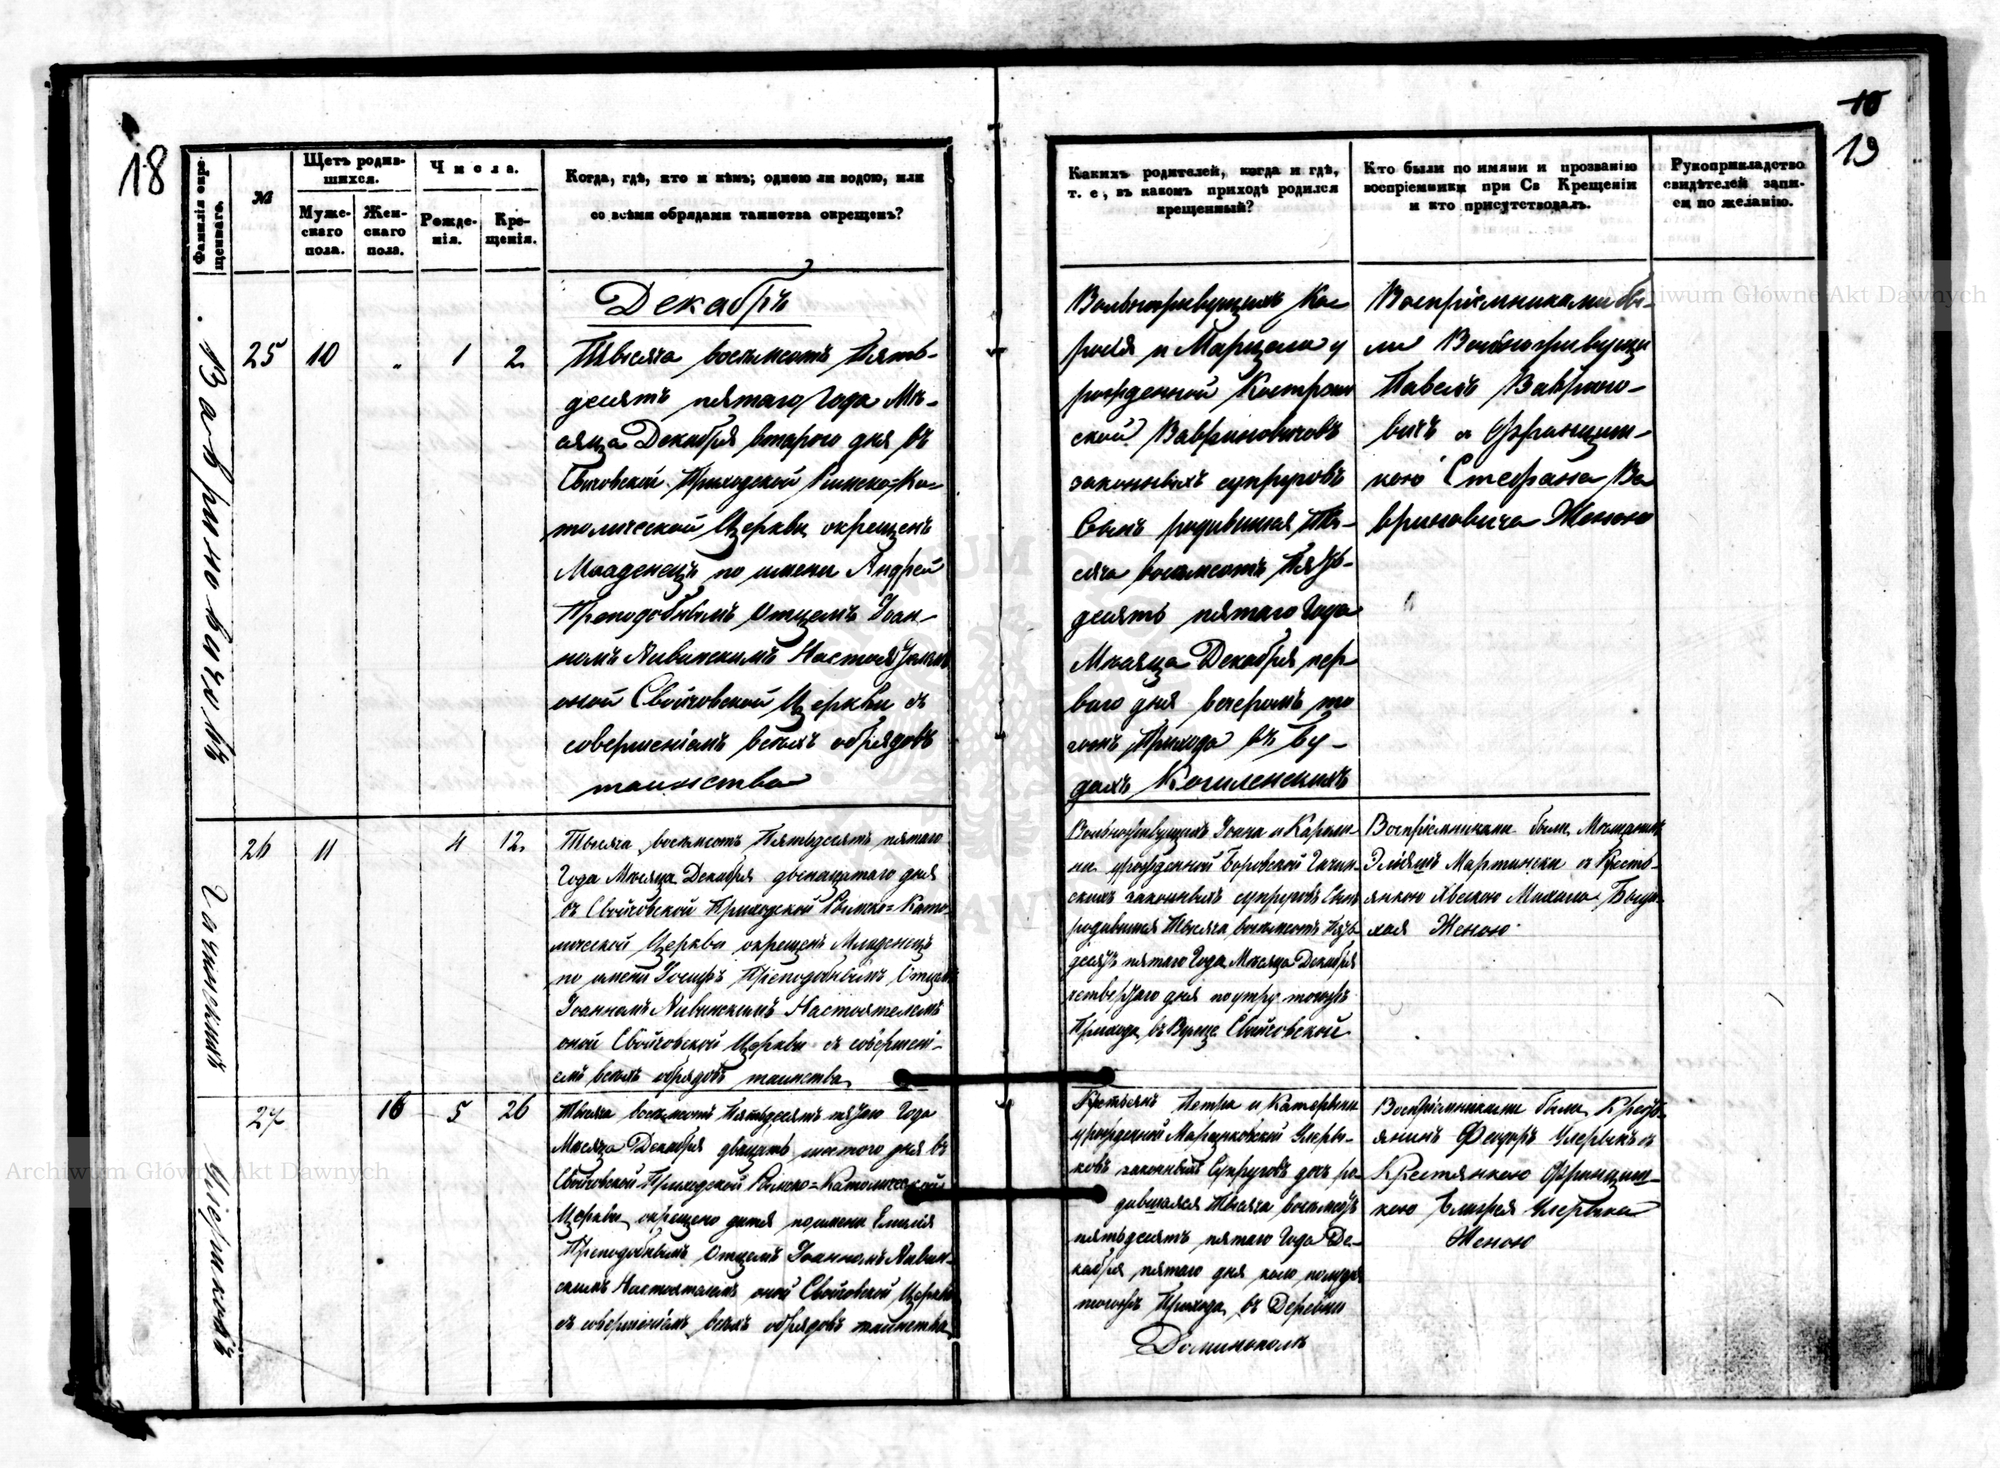 18
Фамилія окрещеннаго.
№
Щетъ родив-
шихся.
Муже-
скаго
пола.
Жен-
скаго
пола.
Числа.
Рожде-
нія.
Кре-
щенія.
Когда, гдѣ, кто и кѣмъ; одною ли водою, или
со всѣми обрядами таинства окрещенъ?
Вавриновичъ
Декабрь
25 10 „ 1 2
Тысяча восемсотъ Пять-
десятъ пятаго Года Мѣ-
сяца Декабря втораго дня въ
Свойчовской Приходской Римско=Ка-
толической Церкви окрещенъ
Младенецъ по имени Андрей
Преподобнымъ Отцемъ Іоан-
номъ
оной Свойчовской Церкви съ
совершеніемъ всехъ обрядовъ
таинства
26 11 4 12
Тысяча восемсотъ Пятьдесятъ пятаго
Года Мѣсяца Декабря двенацатаго дня
въ Свойчовской Приходской Римско=Като-
лической Церкви окрещенъ Младенецъ
по имени Іосифъ Преподобнымъ Отцемъ
Іоанномъ Настоятелемъ
оной Свойчовской Церкви съ совершені-
емъ всехъ обрядовъ таинства
27 16 5 26
Тысяча восемсотъ Пятьдесятъ пятаго Года
Мѣсяца Декабря двацать шостого дня въ
Свойчовской Приходской Римско=Католической
Церкви окрещено дитя по имени Емилія
Преподобнымъ Отцемъ Іоанномъ
Настоятелемъ оной Свойчовской Церкви
съ совершеніемъ всехъ обрядовъ таинства
10
19
Какихъ родителей, когда и гдѣ,
т. е, въ какомъ приходѣ родился
крещенный?
Кто были по имяни и прозванію
воспріемники при Св Крещеніи
и кто присутствовалъ.
Рукоприкладство
свидѣтелей запи-
си по желанію.
Вольноживущихъ Ка-
и Марцели у
рожденной
ской Вавриновичовъ
законныхъ супруговъ
Сынъ родившися Ты-
сяча восемсотъ Пять-
десятъ пятаго Года
Мѣсяца Декабря пер
ваго дня вечеромъ то
гожъ Прихода въ Бу-
дахъ
Воспріемниками бы-
ли Вольноживущи
Павелъ Заврино-
вичъ и Францыш-
кою Стефана Ва
вриновича Женою
Вольноживущихъ Іоана и Кароли-
ни урожденной Боровской
скихъ законныхъ супруговъ Сынъ
родившися Тысяча восемсотъ Пять
десятъ пятаго Года Мѣсяца Декабря
четвертаго дня по утру тогожъ
Прихода въ Свойчовской
Воспріемниками были
Мартински съ Кресть-
янкою Михала
Женою
Крестьянъ Петра и Катерыны
урожденной
законныхъ Супруговъ дочь ро-
дившаяся Тысяча восемсотъ
пятьдесятъ пятаго Года Де-
кабря пятаго дня коло полудня
тогожъ Прихода въ Деревни
Доминополь
Воспріемниками были Кресть-
янинъ Федоръ
Крестянкою Францыш-
кою
Женою
Archiwum Główne Akt Dawnych
Archiwum Główne Akt Dawnych